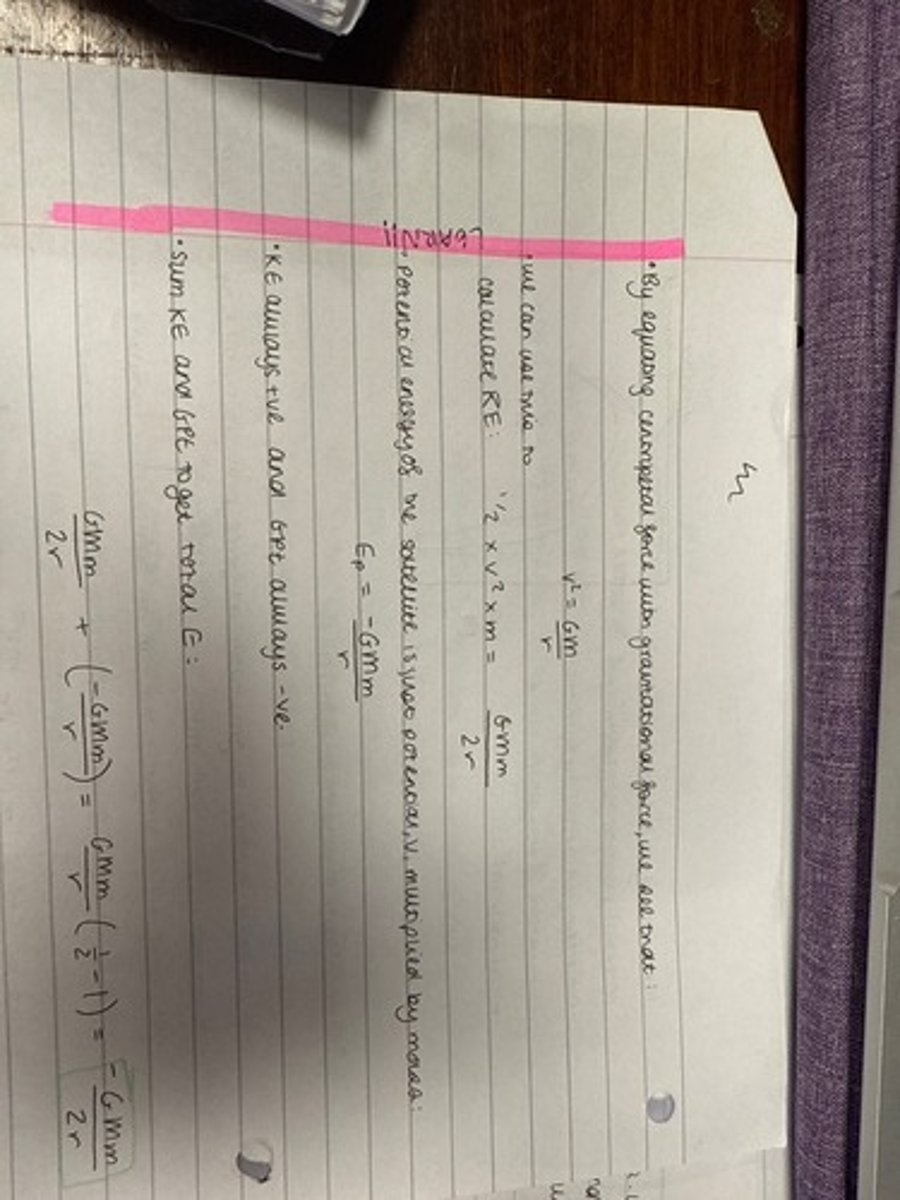 • By equating centripetal force with gravitational force, we see that :
v² = GM/r
• we can use this to
calculate KE : 1/2 x v² x m = GMm/2r
LEARN!!
• Potential energy of the satellite is just potential, V, multiplied by mass :
Ep = -GMm/r
• KE always +ve and GPE always -ve.
• Sum KE and GPE to get total E :
GMm/2r + (-GMm/r) = GMm/r (1/2 - 1) = -GMm/2r